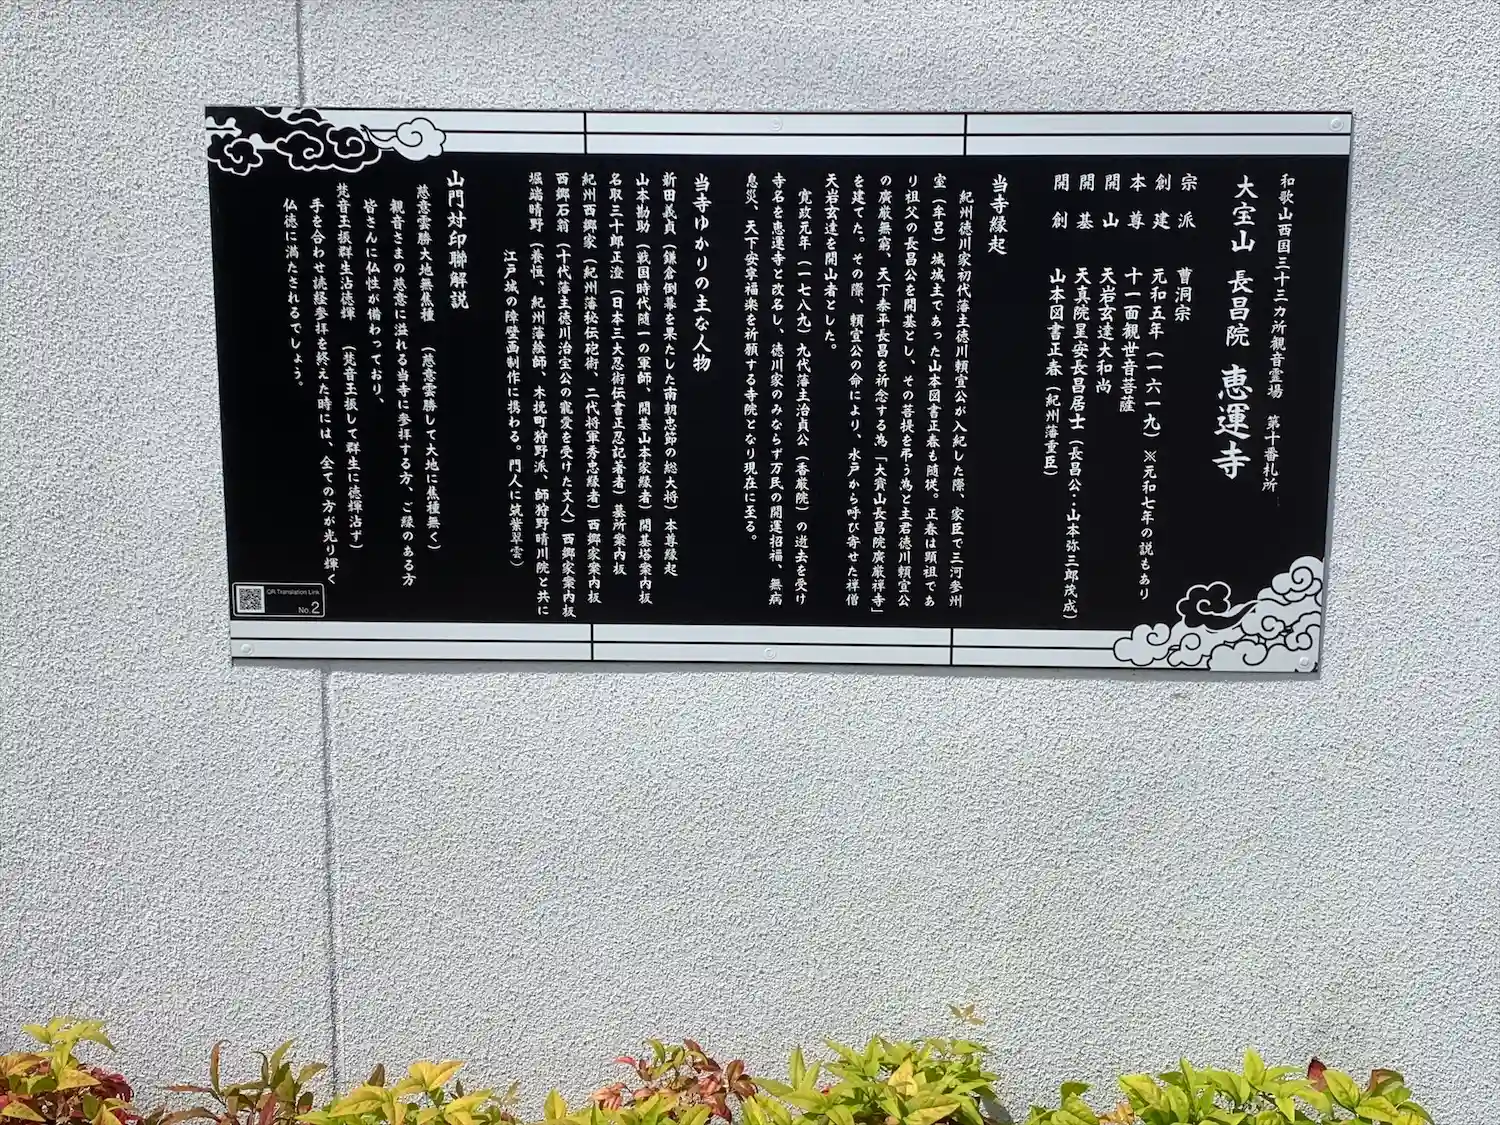 和歌山西国三十三カ所観音霊場　第十番札所
大宝山　長昌院　恵運寺
宗派　曹洞宗
創建　元和五年（一六一九）※元和七年の説もあり
本尊　十一面観世音菩薩
開山　天岩玄達大和尚
開基　天真院星安長昌居士（長昌公：山本弥三郎茂成）
開創　山本図書正春（紀州藩重臣）
当寺縁起
紀州徳川家初代藩主徳川頼宣公が入紀した際、家臣で三河参州
室（牟呂）城城主であった山本図書正春も随従。正春は顕祖であ
り祖父の長昌公を開基とし、その菩提を弔う為と主君徳川頼宣公
の廣厳無窮、天下泰平長昌を祈念する為「大寳山長昌院廣厳禅寺」
を建てた。その際、頼宣公の命により、水戸から呼び寄せた禅僧
天岩玄達を開山者とした。
寛政元年（一七八九）九代藩主治貞公（香厳院）の逝去を受け
寺名を恵運寺と改名し、徳川家のみならず万民の開運招福、無病
息災、天下安寧福楽を祈願する寺院となり現在に至る。
当寺ゆかりの主な人物
新田義貞（鎌倉倒幕を果たした南朝忠節の総大将）本尊縁起
山本勘助（戦国時代随一の軍師、開基山本家縁者）開基塔案内板
名取三十郎正澄（日本三大忍術伝書正忍記著者）墓所案内板
紀州西郷家（紀州藩秘伝砲術、二代将軍秀忠縁者）西郷家案内板
西郷石翁（十代藩主徳川治宝公の寵愛を受けた文人）西郷家案内板
堀端晴野（養恒、紀州藩絵師、木挽町狩野派、師狩野晴川院と共に
江戸城の障壁画制作に携わる。門人に筑紫翠雲）
山門対印聯解説
慈意雲勝大地無焦種　（慈意雲勝して大地に焦種無く）
観音さまの慈意に溢れる当寺に参拝する方、ご縁のある方
皆さんに仏性が備わっており、
梵音玉振群生沾徳輝　（梵音玉振して群生に徳輝沾ず）
手を合わせ読経参拝を終えた時には、全ての方が光り輝く
仏徳に満たされるでしょう。
QR Translation Link
No.2